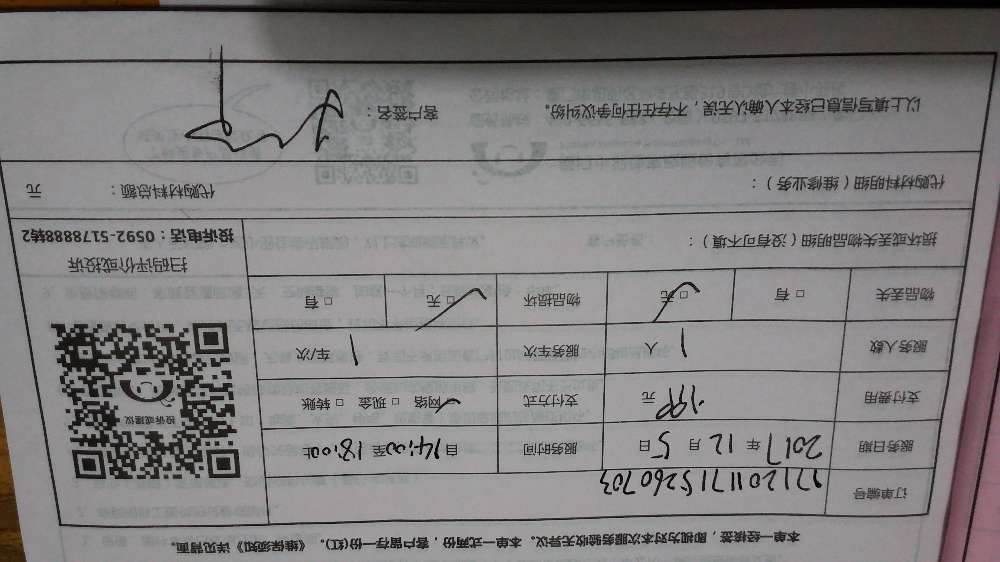 本单一经核签，即视为对本次服务验收无异议。本单一式两份，客户留存一份(红)。《维保须知》详见背面。
订单编号
服务日期 2017 年 12 月 5 日 服务时间 自 14:00 至 18:00 止
支付费用 199 元 支付方式 网络 □ 现金 □ 转账
服务人数 1 人 服务车次 1 车/次
物品丢失 □ 有 □ 无 物品损坏 □ 无 □ 有
投诉或建议
扫码评价或投诉
投诉电话：0592-5178888转2
损坏或丢失物品明细（没有可不填）：
代购材料明细（维修业务）： 代购材料总额： 元
以上填写信息已经本人确认无误，不存在任何争议纠纷。 客户签名：